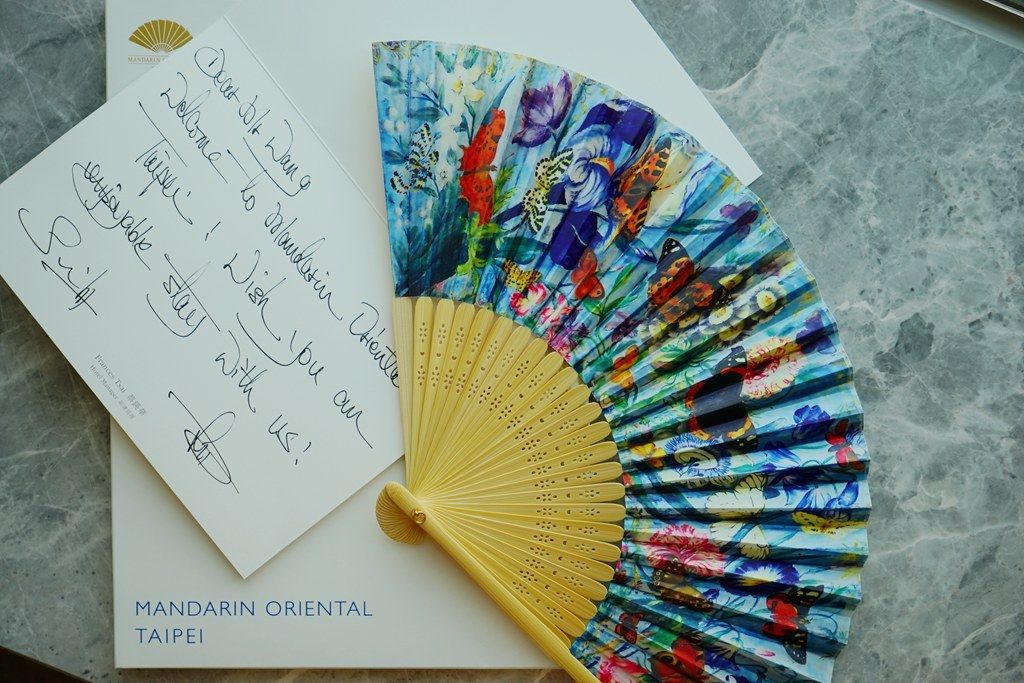 MANDARIN
Dear Ms Wang
Welcome to Mandarin Oriental
Taipei! Wish you an
enjoyable stay with us!
Frances Tsai
Hotel Manager
MANDARIN ORIENTAL
TAIPEI